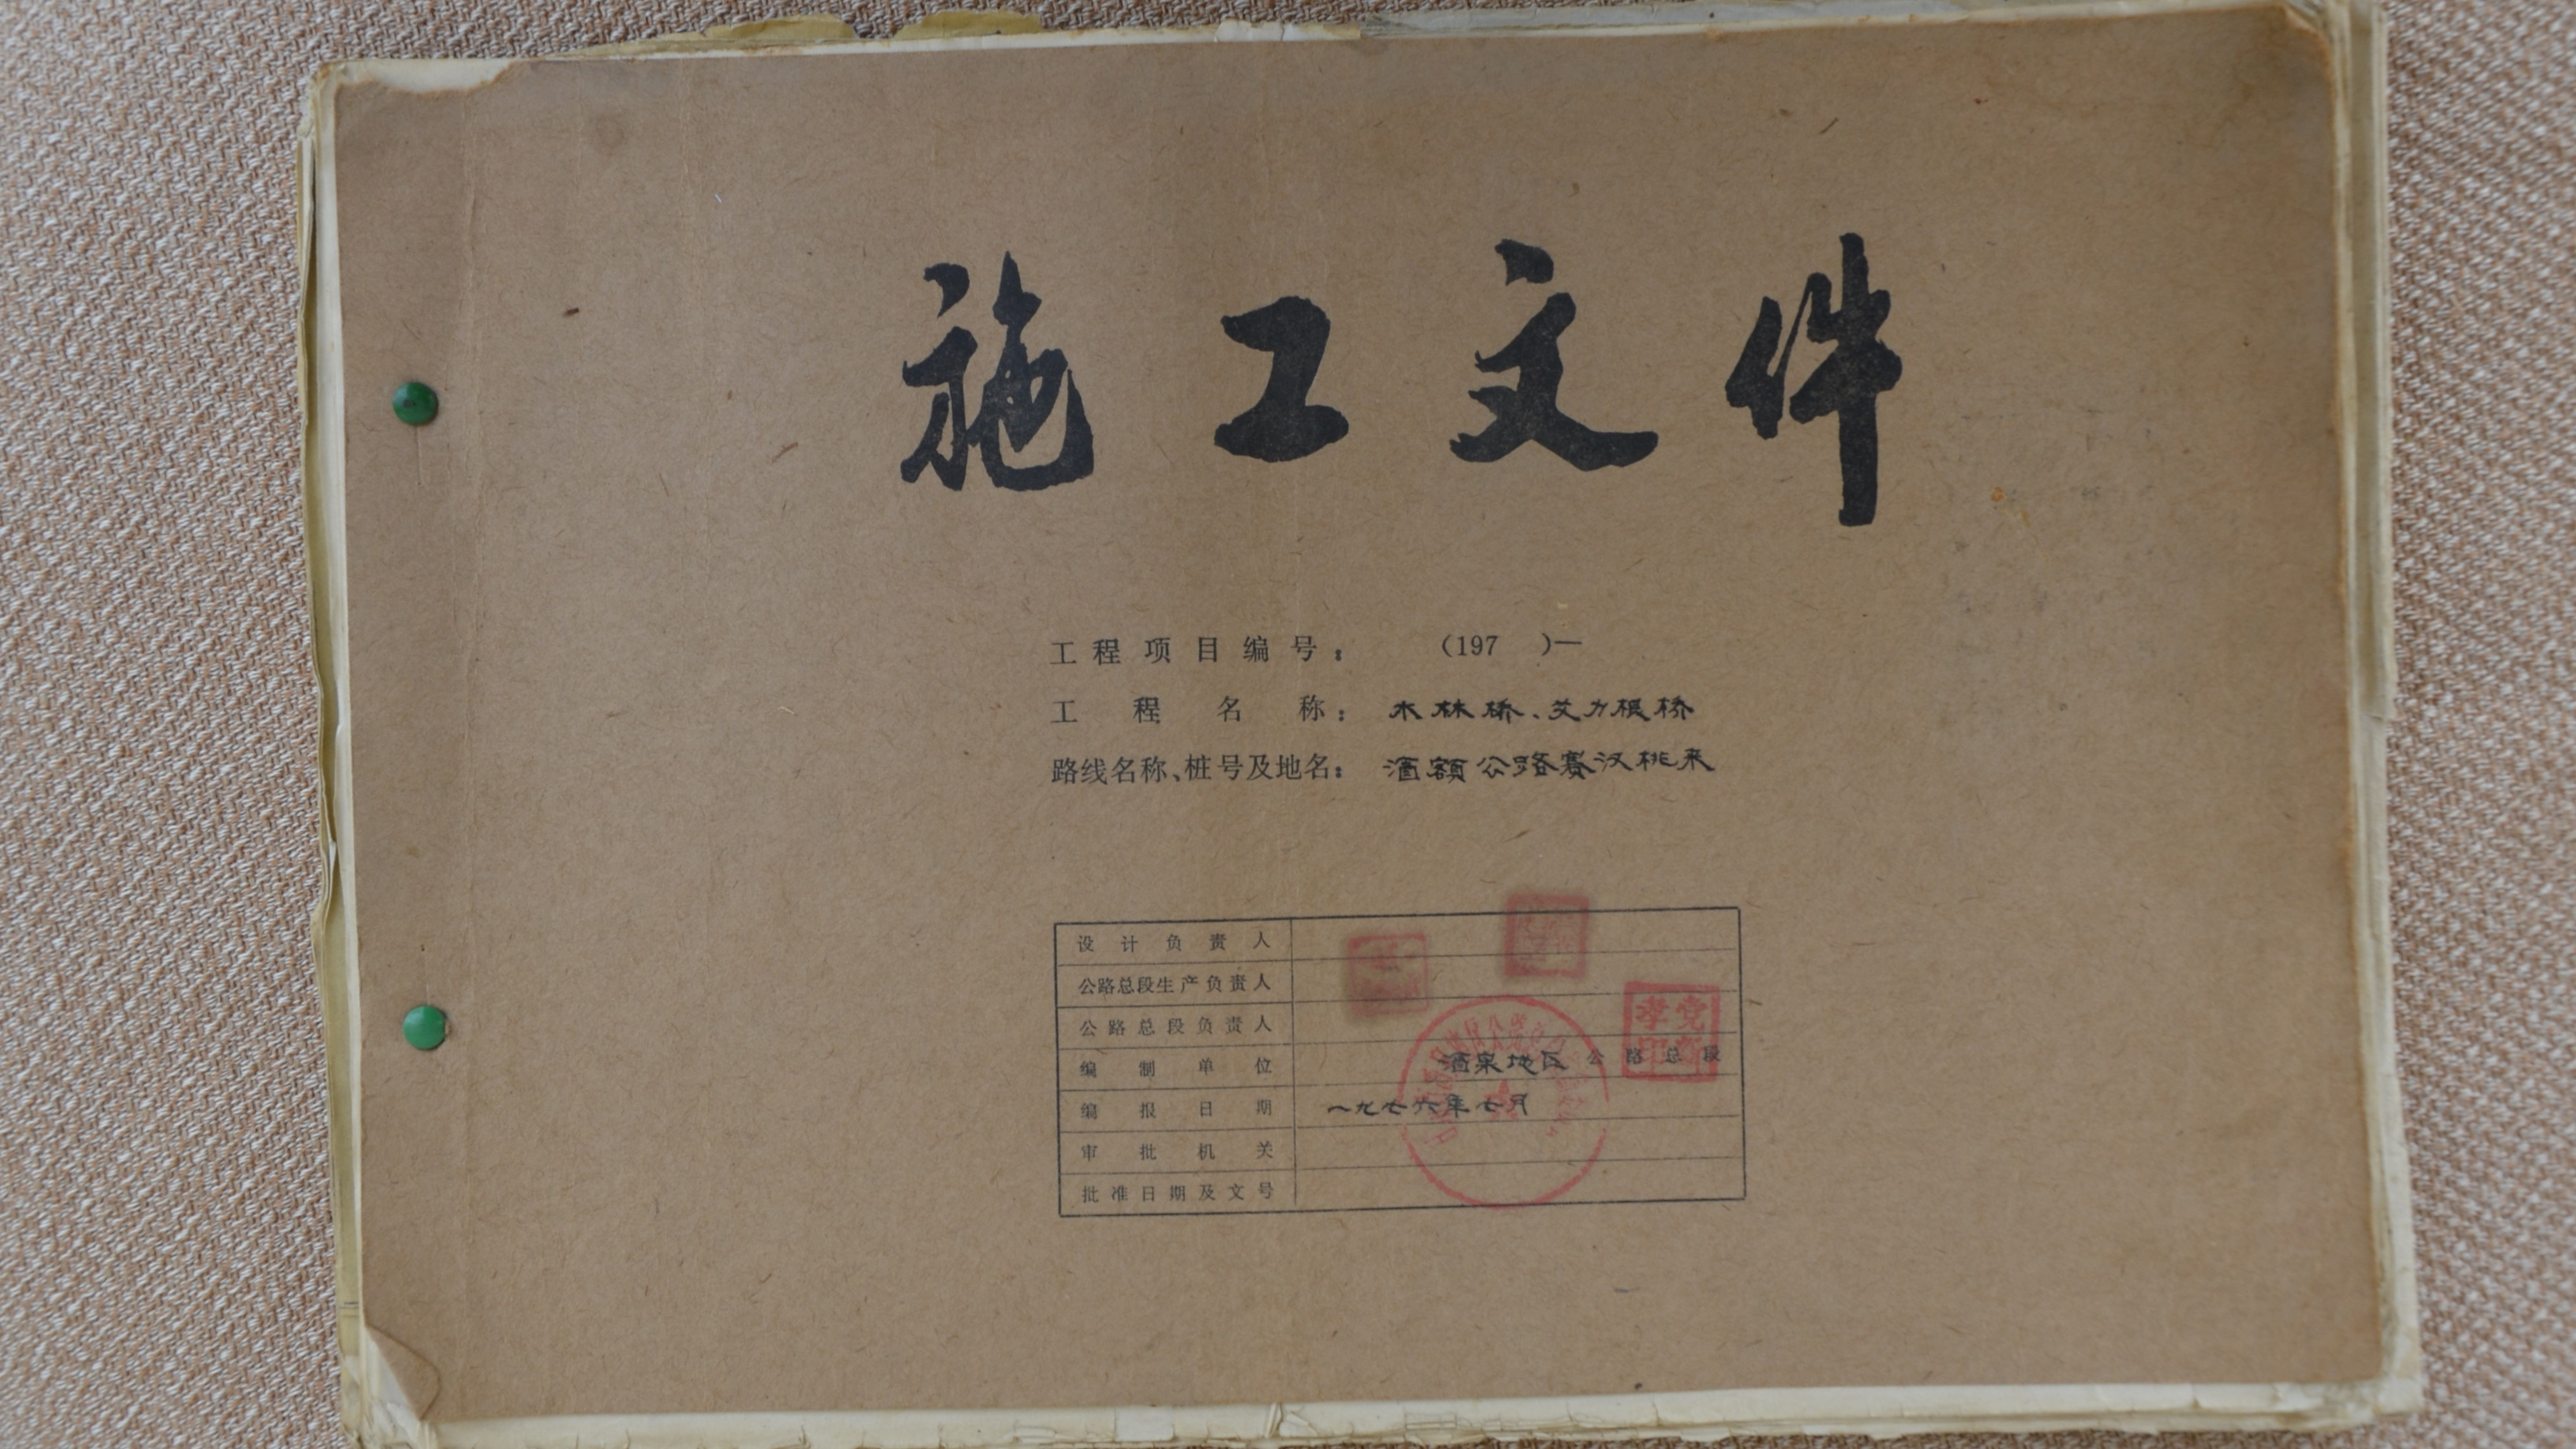 施工文件
工程项目编号： (197 )—
工程名称： 木林桥、艾力根桥
路线名称、桩号及地名： 酒额公路赛汉桃来
设计负责人
公路总段生产负责人
公路总段负责人
编制单位 酒泉地区公路总段
编报日期 一九七六年七月
审批机关
批准日期及文号